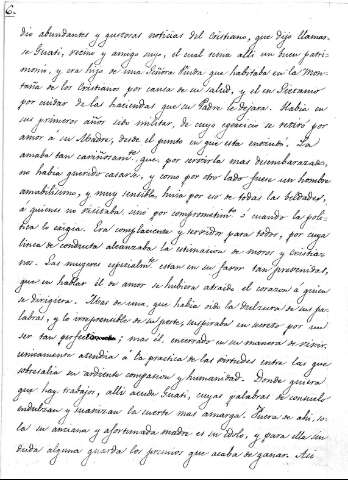 6.
dio abundantes y gustosas noticias del cristiano, que dijo llamar-
se Guati, vecino y amigo suyo, el cual tenia alli un buen patri-
monio, y era hijo de una Señora Viuda que habitaba en la Mon-
taña de los Cristianos por causa de su salud, y él en
por cuidar de las haciendas que su Padre le dejara. Habia en
sus primeros años sido militar, de cuyo egercicio se retiró por
amor á su Madre, desde el punto en que esta enviudó. La
amaba tan cariñosamte. que, por servirla mas desembarazado,
no habia querido casarse, y como por otro lado fuese un hombre
amabilisimo, y muy sensible, huia por eso de todas las beldades,
á quienes no visitaba sino por compromiso ó cuando la poli-
tica lo exigia. Era complaciente y servidor para todos, por cuya
linea de conducta alcanzaba la estimacion de moros y cristia-
nos. Las mugeres especialmte. estan en su favor tan prevenidas,
que en hablar él de amor se hubiera atraido el corazon á quien
se dirigiera. Mas de una, que habia oido la dulzura de sus pa-
labras, y lo irreprensible de su porte, suspiraba en secreto por un
ser tan perfecto; mas él, encerrado en su manera de vivir,
unicamente atendia á la practica de las virtudes entre las que
sobresalia su ardiente compasion y humanidad. Donde quiera
que hay trabajos, alli acude Guati, cuyas palabras de consuelo
endulzan y suavizan la suerte mas amarga. Fuera de ahi, so-
la su anciana y afortunada madre es su idolo, y para ella sin
duda alguna guarda los premios que acaba de ganar. Asi